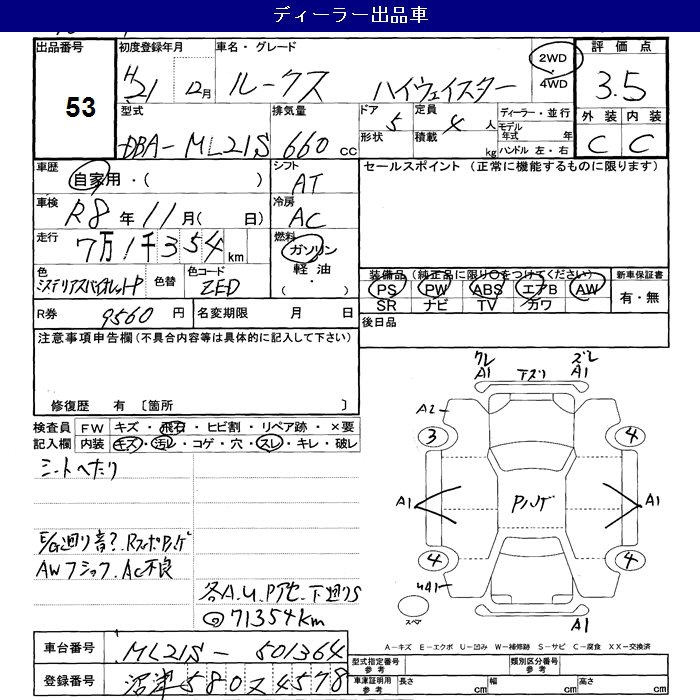 ディーラー出品車
出品番号 53
初度登録年月 H21 12月
車名・グレード ルークス ハイウェイスター
2WD
4WD
評価点 3.5
外装 C 内装 C
型式 DBA-ML21S
排気量 660 cc
ドア 5
形状
定員 4 人
積載 kg
ディーラー・並行
モデル年式 年
ハンドル 左・右
車歴 自家用・( )
シフト AT
セールスポイント (正常に機能するものに限ります)
車検 R8年11月( 日)
冷房 AC
走行 7万1千354 km
燃料 ガソリン
軽油
・( )
色 ミステリアスバイオレットP
色替
色コード ZED
装備品 (純正品に限り○をつけてください)
PS PW ABS エアB AW
SR ナビ TV カワ
新車保証書
有・無
R券 9560 円
名変期限 月 日
後日品
注意事項申告欄(不具合内容等は具体的に記入して下さい)
修復歴 有 〔箇所 〕
検査員 FW キズ・飛石・ヒビ割・リペア跡・×要
記入欄 内装 キズ・汚レ・コゲ・穴・スレ・キレ・破レ
シートへたり
E/G廻り音?.RスポPハゲ
AWフショク.AC不良
各A.U.Pアセ.下廻りS
◎71354km
クレ A1
下ズリ
ズレ A1
A2
3
4
A1
Pハゲ
A1
4
4
A1
スペア
A1
A-キズ E-エクボ U-凹み W-補修跡 S-サビ C-腐食 XX-交換済
車台番号 ML21S-501364
登録番号 沼津580ス4578
型式指定番号
参考
類別区分番号
参考
車庫証明用
参考
長さ cm
幅 cm
高さ cm